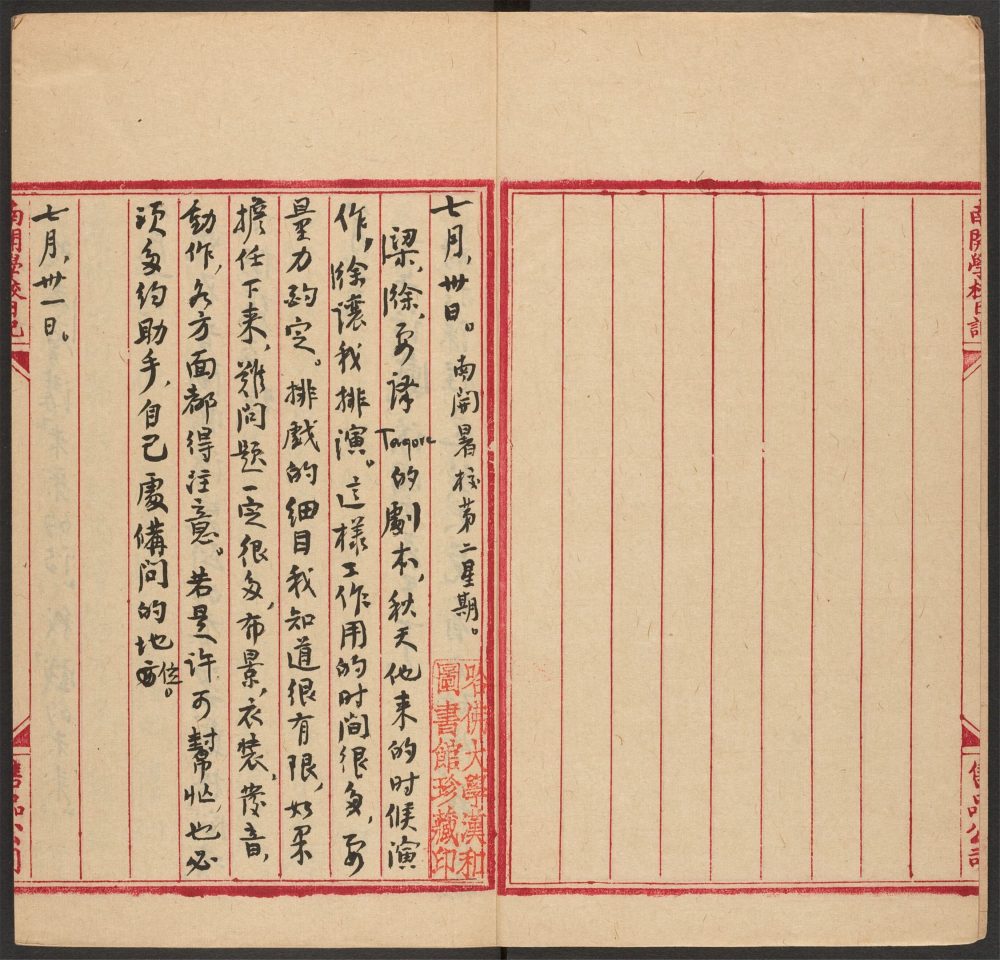 南開學校日記
售品公司
七月，卅日。南開暑校第二星期。
梁，徐，要译 Tagore 的劇本，秋天他来的时候演
作，徐讓我排演。这樣工作用的时间很多，要
量力酌定。排戲的细目我知道很有限，如果
擔任下来，難问题一定很多，布景，衣装，發音，
動作，各方面都得注意。若是许可幫忙，也必
须多约助手，自己處備问的地位。
七月，卅一日。
哈佛大學漢和
圖書館珍藏印
南開學校日記
售品公司